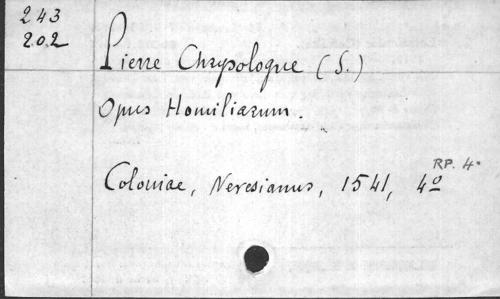 243
202
Pierre Chrysologue (S.)
Opus Homiliarum.
RP. 4°
Coloniae, Neresianus, 1541, 4º